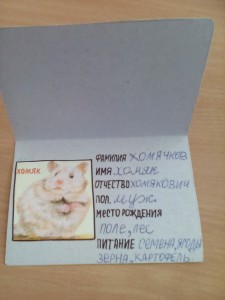 ХОМЯК
ФАМИЛИЯ ХОМЯЧКОВ
ИМЯ ХОМЯК
ОТЧЕСТВО ХОМЯКОВИЧ
ПОЛ. муж.
МЕСТО РОЖДЕНИЯ
ПОЛЕ, ЛЕС
ПИТАНИЕ СЕМЕНА, ЯГОДЫ
ЗЕРНА, КАРТОФЕЛЬ